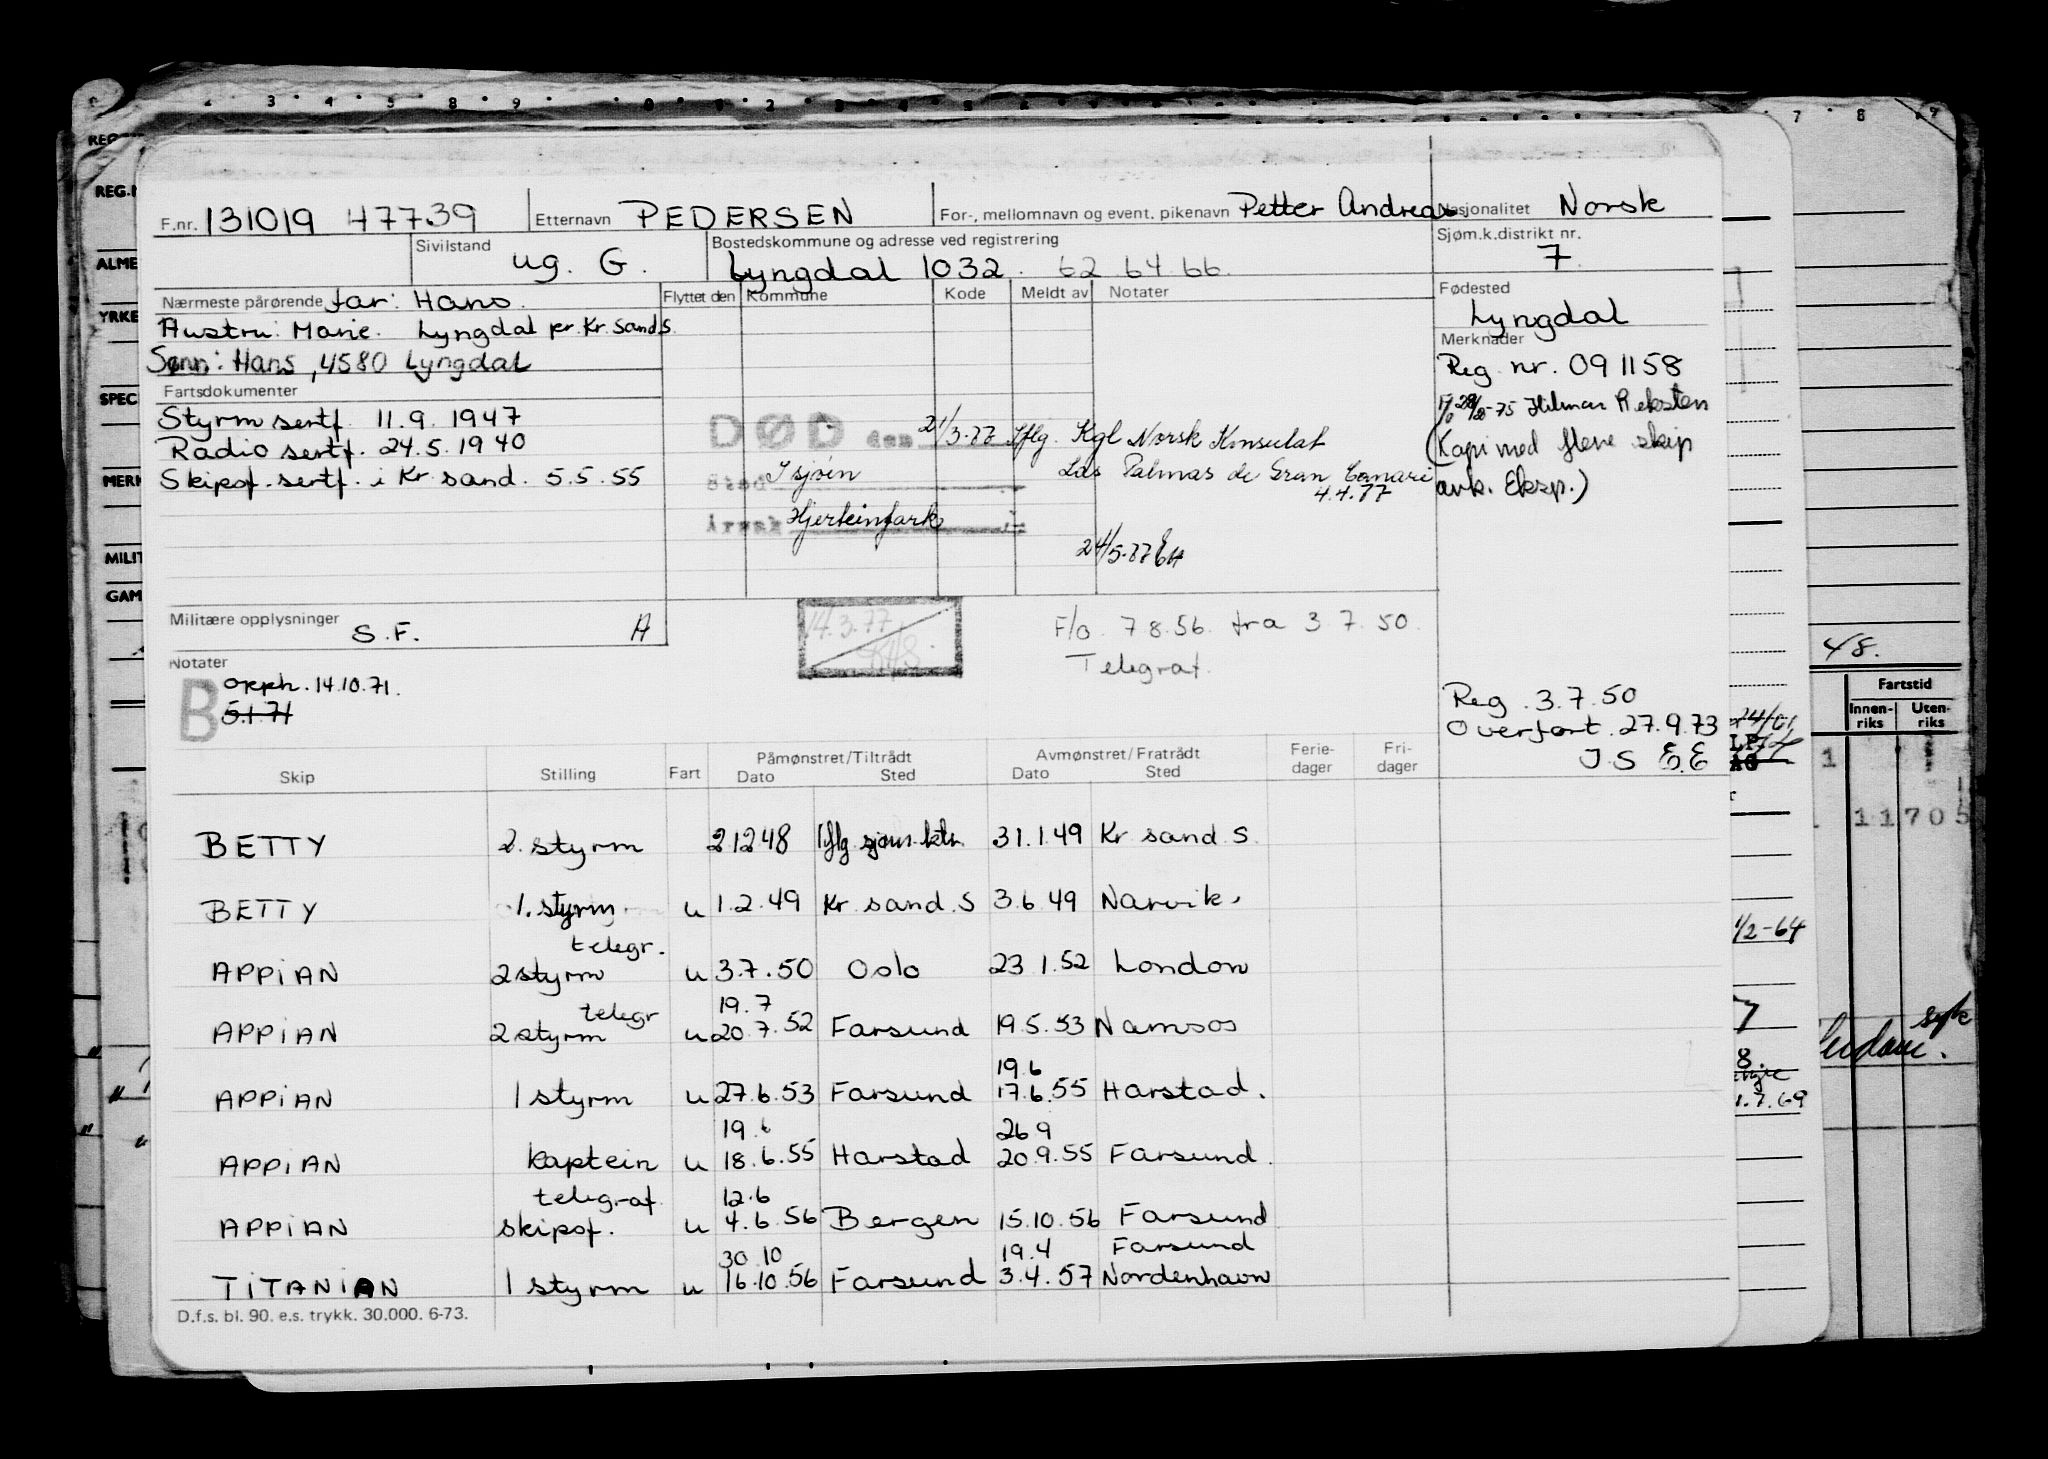 F.nr. 131019 47739 Etternavn PEDERSEN For-, mellomnavn og event. pikenavn Petter Andreas Nasjonalitet Norsk
Sivilstand ug. G. Bostedskommune og adresse ved registrering Lyngdal 1032. 62 64 66 Sjøm.k.distrikt nr. 7
Nærmeste pårørende far: Hans. Flyttet den Kommune Kode Meldt av Notater Fødested
Hustru: Marie. Lyngdal pr. Kr. sand S. Lyngdal
Sønn: Hans, 4580 Lyngdal Merknader
Reg. nr. 091158
Fartsdokumenter
Styrm sertf. 11.9.1947
Radio sertf. 24.5.1940
Skipsf. sertf. i Kr sand. 5.5.55
DØD den 21/3.77 Iflg. Kgl Norsk Konsulat
Las Palmas de Gran Canari
4.4.77
Sted I sjøen
Årsak Hjerteinfark
24/5.77 EH
-75 Hilmar Reksten
(Kapt med flere skip
ank. Eksp.)
Militære opplysninger S.F. A
14.3.77
F/o. 7 8.56. fra 3.7.50.
Telegraf.
Notater
B opph. 14.10.71.
5.1.71
Reg. 3.7.50
Overført. 27.9.73
J.S E.E
Skip Stilling Fart Påmønstret/Tiltrådt Dato Sted Avmønstret/Fratrådt Dato Sted Ferie-dager Fri-dager
BETTY 2. styrm 21248 Iflg sjøm.ktr. 31.1.49 Kr sand S.
BETTY 1. styrm u 1.2.49 Kr sand S 3.6.49 Narvik.
telegr.
APPIAN 2 styrm u 3.7.50 Oslo 23 1.52 London
telegr 19.7
APPIAN 2 styrm u 20.7.52 Farsund 19.5.53 Namsos
19.6
APPIAN 1 styrm u 27.6.53 Farsund 17.6.55 Harstad.
19.6 26 9
APPIAN kaptein u 18.6.55 Harstad 20.9.55 Farsund.
telegraf 12.6
APPIAN skipsf. u 4.6.56 Bergen 15.10.56 Farsund
30 10 19.4 Farsund
TITANIAN 1 styrm u 16.10.56 Farsund 3.4.57 Nordenhavn
D.f.s. bl. 90. e.s. trykk. 30.000. 6-73.
REG.N
ALME
YRKE
SPEC
MERK
MILIT
GAM
48.
Fartstid
Innen-riks Uten-riks
11705
1/2-64
1.7.69